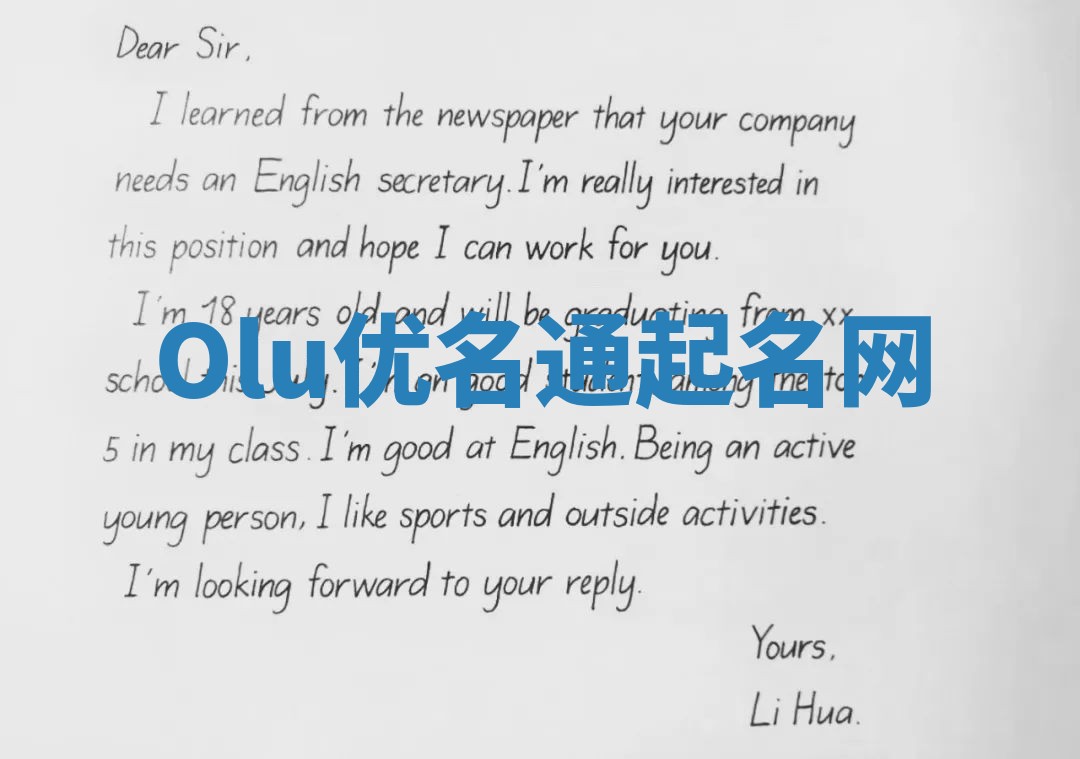 Dear Sir,
I learned from the newspaper that your company
needs an English secretary. I'm really interested in
this position and hope I can work for you.
I'm 18 years old and will be graduating from xx
Olu优名通起名网
school this July. I'm an good student among the top
5 in my class. I'm good at English. Being an active
young person, I like sports and outside activities.
I'm looking forward to your reply.
Yours,
Li Hua.